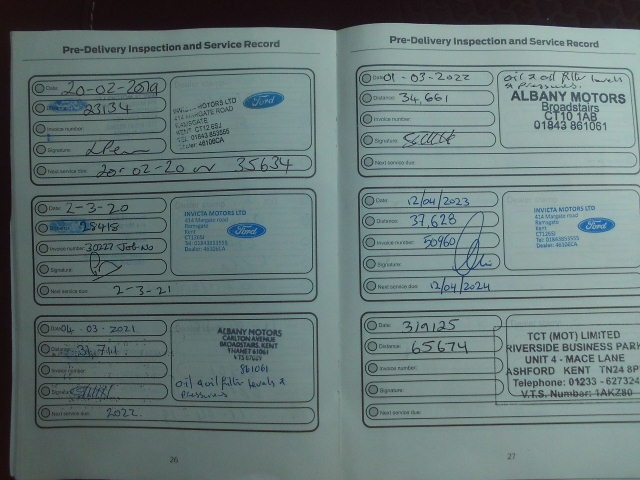 Pre-Delivery Inspection and Service Record
Date: 20-02-2019
23134
Invoice number:
Signature:
Next service due: 20-02-20 or 35634
INVICTA MOTORS LTD
41A MARGATE ROAD
RAMSGATE
KENT CT12 6SJ
TEL: 01843 853555
Dealer: 46106CA
Ford
Date: 2-3-20
28413
Invoice number: 30227 Job No
Signature:
Next service due: 2-3-21
INVICTA MOTORS LTD
41A Margate road
Ramsgate
Kent
CT126SJ
Tel: 01843853555
Dealer: 46326CA
Ford
Date: 04.03.2021
Distance: 31,711
Invoice number:
Signature:
Next service due: 2022.
ALBANY MOTORS
CARLTON AVENUE
BROADSTAIRS, KENT
THANET 61061
861061
oil & oil filter levels &
pressures
26
Pre-Delivery Inspection and Service Record
Date: 01-03-2022
Distance: 34,661
Invoice number:
Signature:
Next service due:
oil & oil filter levels
& pressures.
ALBANY MOTORS
Broadstairs
CT10 1AB
01843 861061
Date: 12/04/2023
Distance: 37,628
Invoice number: 50960
Signature:
Next service due: 12/04/2024
INVICTA MOTORS LTD
41A Margate road
Ramsgate
Kent
CT126SJ
Tel: 01843853555
Dealer: 46326CA
Ford
Date: 3/9/25
Distance: 65674
Invoice number:
Signature:
Next service due:
TCT (MOT) LIMITED
RIVERSIDE BUSINESS PARK
UNIT 4 - MACE LANE
ASHFORD KENT TN24 8P
Telephone: 01233 - 627324
V.T.S. Number: 1AKZ80
27